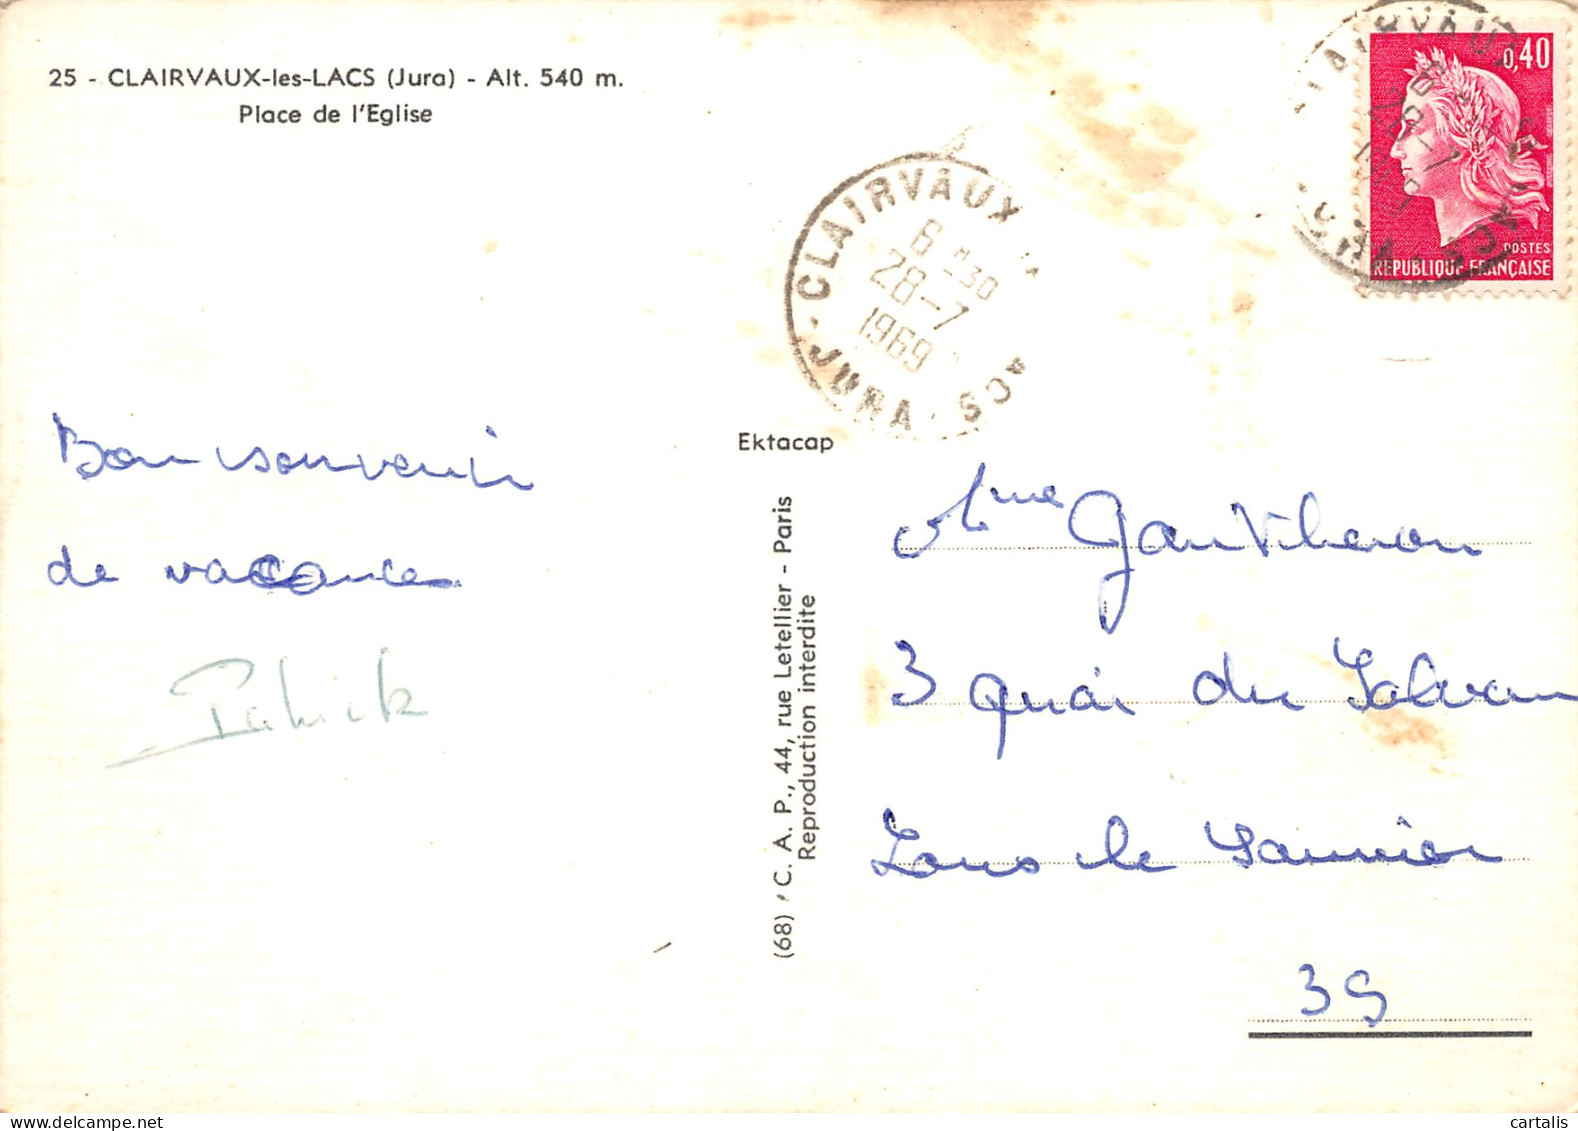 25 - CLAIRVAUX-les-LACS (Jura) - Alt. 540 m.
Place de l'Eglise
CLAIRVAUX
6 H 30
28-7
1969
JURA
0,40
POSTES
REPUBLIQUE FRANÇAISE
Bon souvenir
de vacances
Patrick
Ektacap
(68) C. A. P., 44, rue Letellier - Paris
Reproduction interdite
Mme Gautheron
3 Quai du
Lons le Saunier
39
cartalis